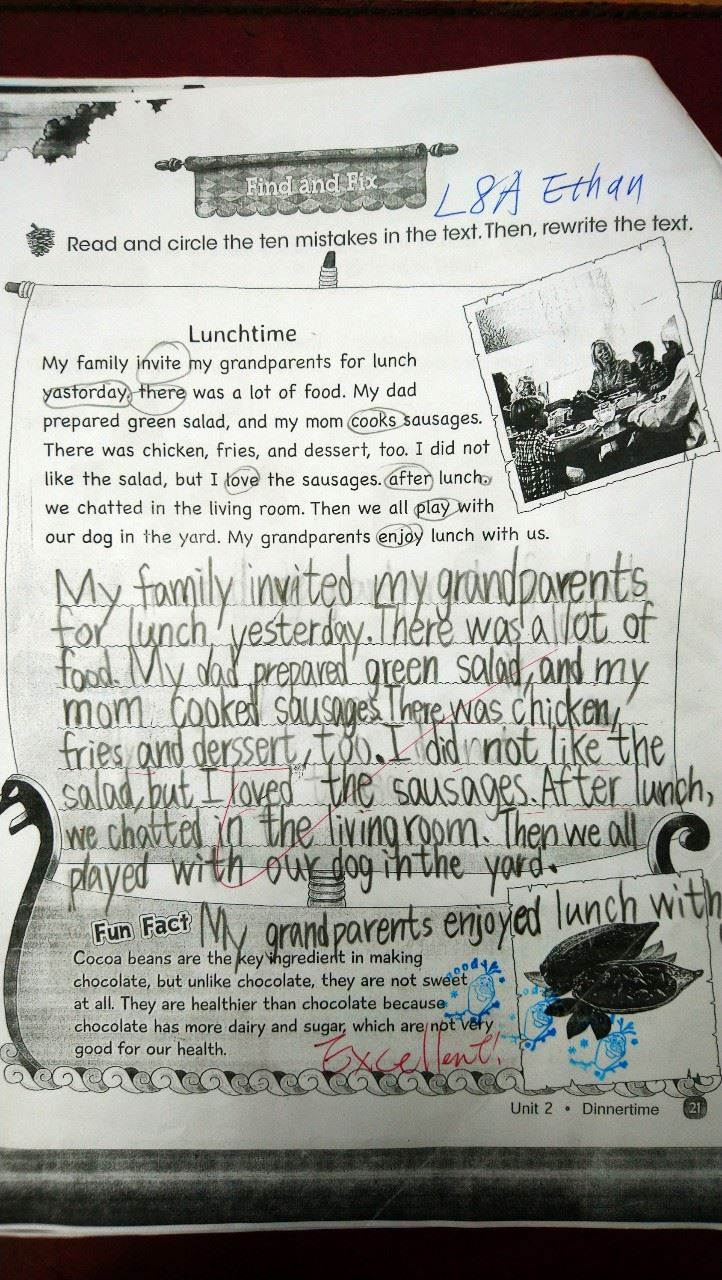 Find and Fix
L8A Ethan
Read and circle the ten mistakes in the text. Then, rewrite the text.
Lunchtime
My family invite my grandparents for lunch
yastorday, there was a lot of food. My dad
prepared green salad, and my mom cooks sausages.
There was chicken, fries, and dessert, too. I did not
like the salad, but I love the sausages. after lunch.
we chatted in the living room. Then we all play with
our dog in the yard. My grandparents enjoy lunch with us.
My family invited my grandparents
for lunch yesterday. There was a lot of
food. My dad prepared green salad, and my
mom cooked sausages. There was chicken,
fries, and derssert, too. I did not like the
salad, but I loved the sausages. After lunch,
we chatted in the living room. Then we all
played with our dog in the yard.
My grandparents enjoyed lunch with
Fun Fact
Cocoa beans are the key ingredient in making
chocolate, but unlike chocolate, they are not sweet
at all. They are healthier than chocolate because
chocolate has more dairy and sugar, which are not very
good for our health.
Excellent!
Unit 2 • Dinnertime 21